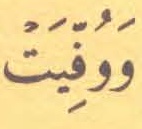 وَوُفِّيَتْ